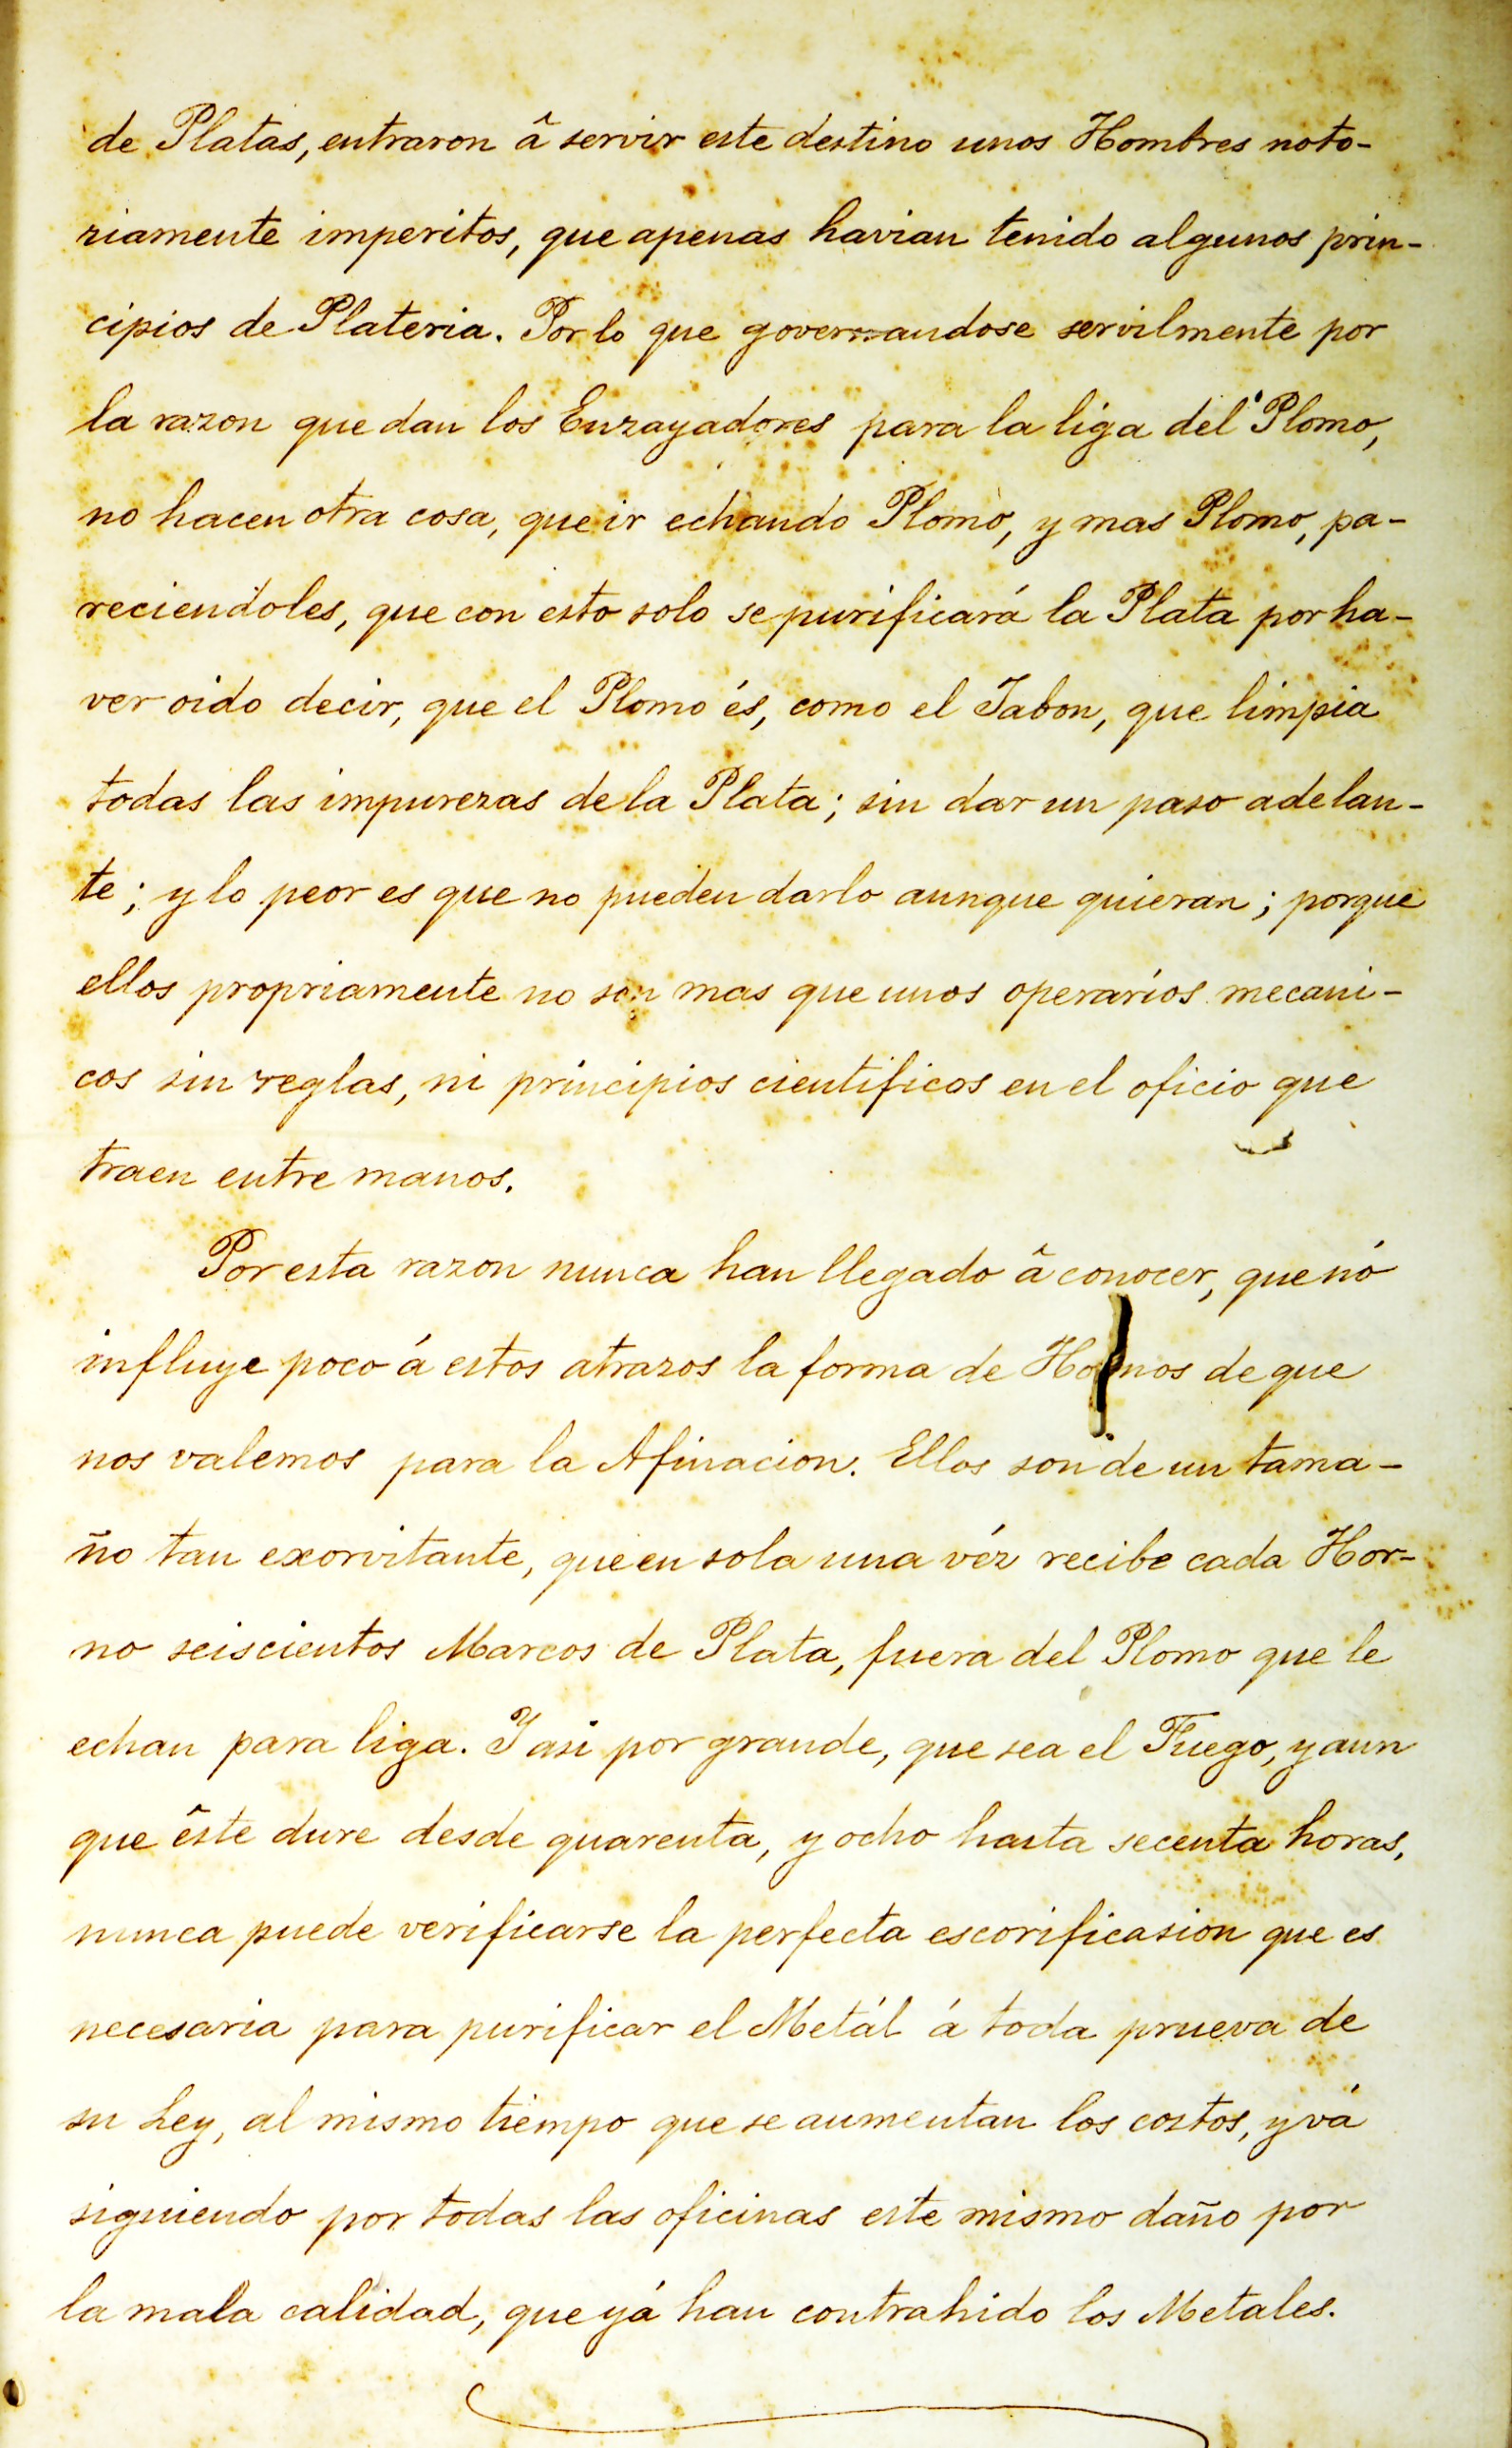 de Platas, entraron â servir este destino unos Hombres noto-
riamente imperitos, que apenas havian tenido algunos prin-
cipios de Plateria. Por lo que governandose servilmente por
la razon que dan los Enzayadores para la liga del Plomo,
no hacen otra cosa, que ir echando Plomo, y mas Plomo, pa-
reciendoles, que con esto solo se purificará la Plata por ha-
ver oido decir, que el Plomo és, como el Jabon, que limpia
todas las impurezas de la Plata; sin dar un paso adelan-
te; y lo peor es que no pueden darlo aunque quieran; porque
ellos propriamente no son mas que unos operarios mecani-
cos sin reglas, ni principios cientificos en el oficio que
traen entre manos.
Por esta razon nunca han llegado â conocer, que nó
influye poco á estos atrazos la forma de Hornos de que
nos valemos para la Afinacion. Ellos son de un tama-
ño tan exorvitante, que en sola una véz recibe cada Hor-
no seiscientos Marcos de Plata, fuera del Plomo que le
echan para liga. Y asi por grande, que sea el Fuego, y aun
que êste dure desde quarenta, y ocho hasta secenta horas,
nunca puede verificarse la perfecta escorificasion que es
necesaria para purificar el Metál á toda prueva de
su Ley, al mismo tiempo que se aumentan los costos, y vá
siguiendo por todas las oficinas este mismo daño por
la mala calidad, que yá han contrahido los Metales.